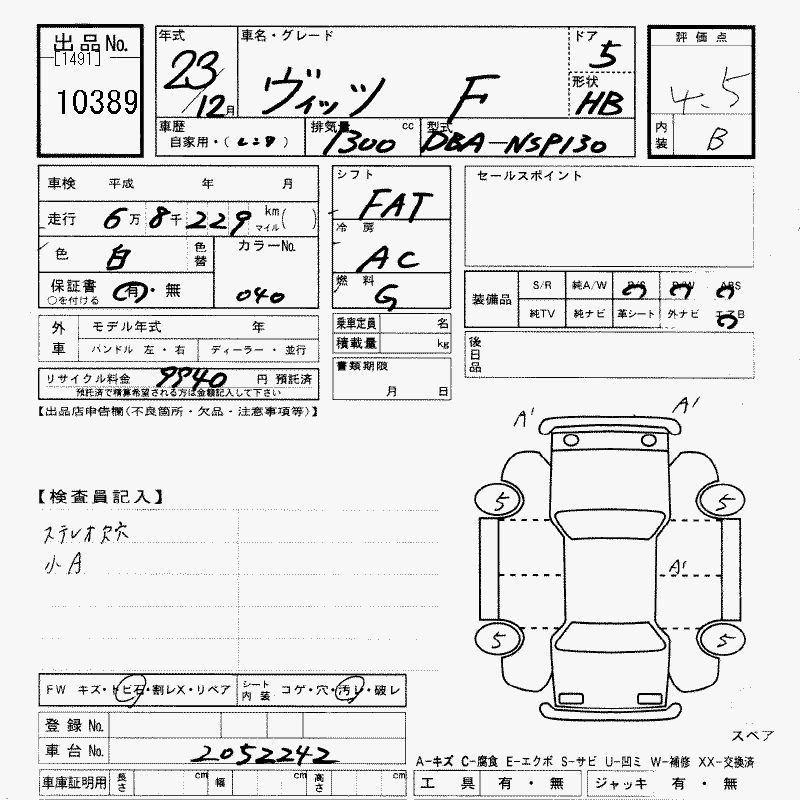 出品No.
[1491]
10389
年式
23/12月
車名・グレード
ヴィッツ F
ドア
5
形状
HB
評価点
4.5
内装
B
車歴
自家用・(レンタ)
排気量 cc
1300
型式
DBA-NSP130
車検 平成 年 月
走行 6万8千229 km マイル( )
色 白 色替
カラーNo.
040
保証書 有・無
○を付ける
外車
モデル年式 年
ハンドル 左・右 ディーラー・並行
リサイクル料金 9940 円 預託済
預託済で積算希望される方は金額記入して下さい
シフト
FAT
冷房
AC
燃料
G
乗車定員 名
積載量 kg
書類期限
月 日
セールスポイント
装備品
S/R 純A/W P/S P/W ABS
純TV 純ナビ 革シート 外ナビ エアB
後日品
【出品店申告欄(不良箇所・欠品・注意事項等)】
【検査員記入】
ステレオ欠穴
小A
A' A'
5 5
A'
5 5
FW キズ・トビ石・割レX・リペア
シート内装 コゲ・穴・汚レ・破レ
登録No.
車台No. 2052242
車庫証明用 長さ cm 幅 cm 高さ cm
スペア
A-キズ C-腐食 E-エクボ S-サビ U-凹ミ W-補修 XX-交換済
工具 有・無 ジャッキ 有・無